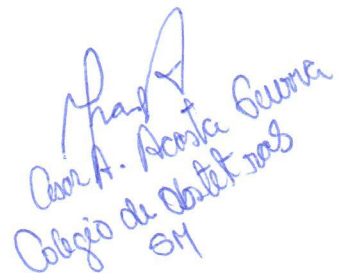 Cesar A. Acosta
Colegio de Obstetras
SM